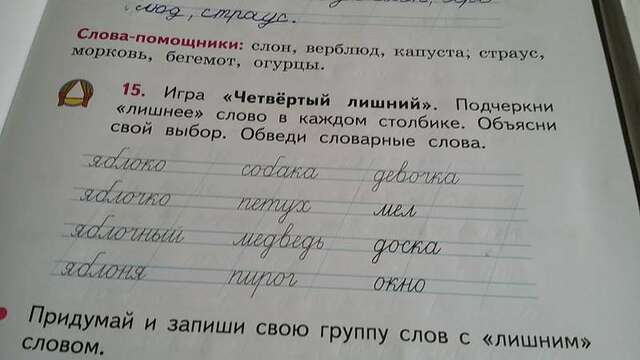 люд, страус.
Слова-помощники: слон, верблюд, капуста, страус,
морковь, бегемот, огурцы.
15. Игра «Четвёртый лишний». Подчеркни
«лишнее» слово в каждом столбике. Объясни
свой выбор. Обведи словарные слова.
яблоко собака девочка
яблочко петух мел
яблочный медведь доска
яблоня пирог окно
Придумай и запиши свою группу слов с «лишним»
словом.